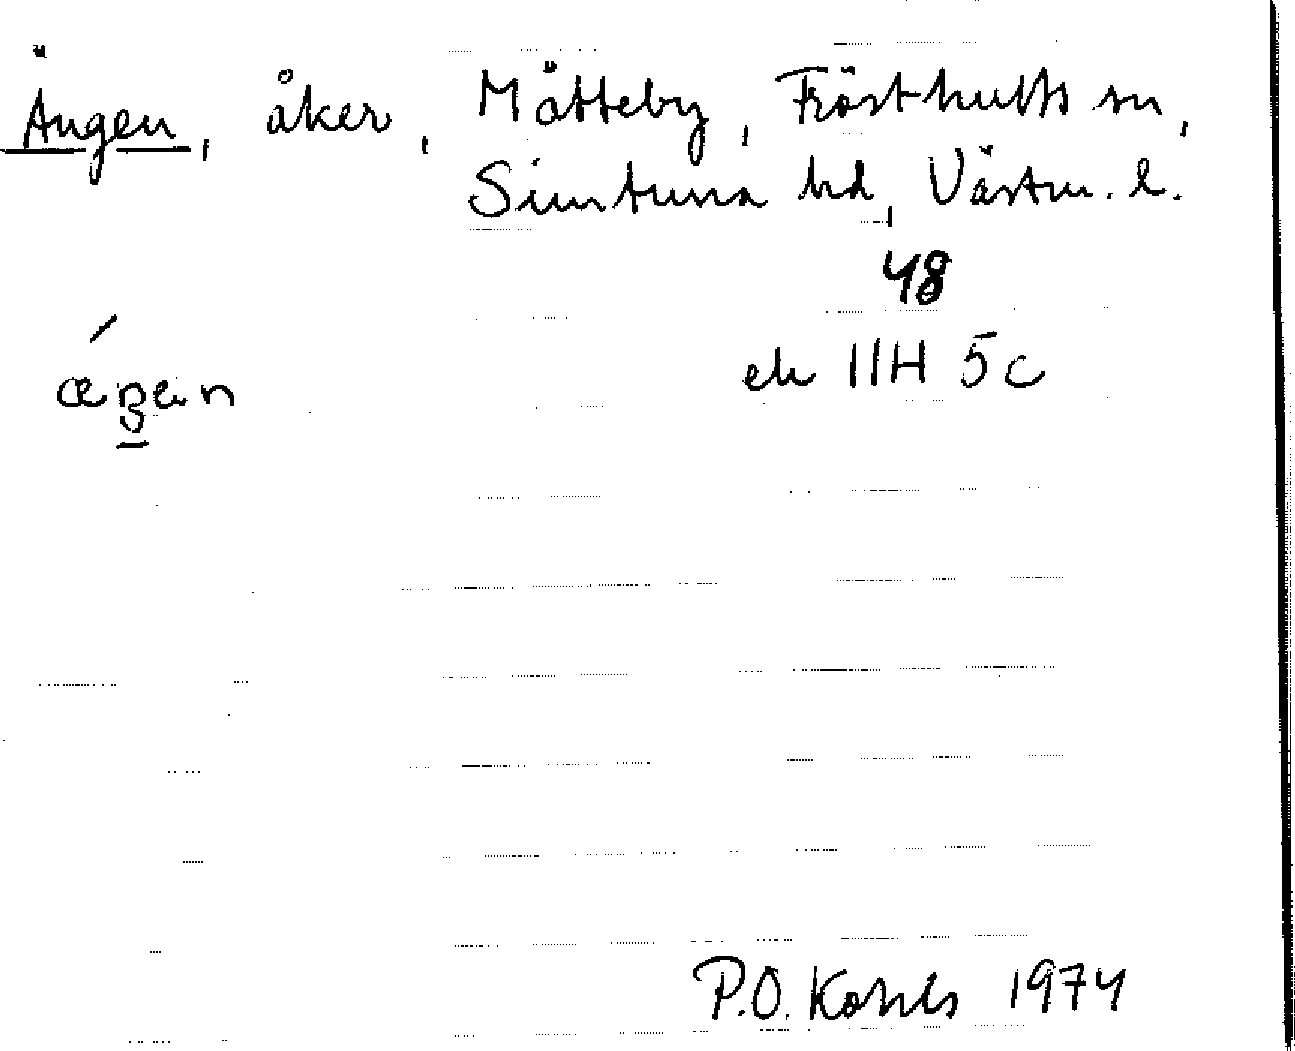 Ängen, åker, Mätteby, Frösthults sn,
Simtuna hd, Västm. l.
48
ek 11H 5c
P.O. Kohls 1974